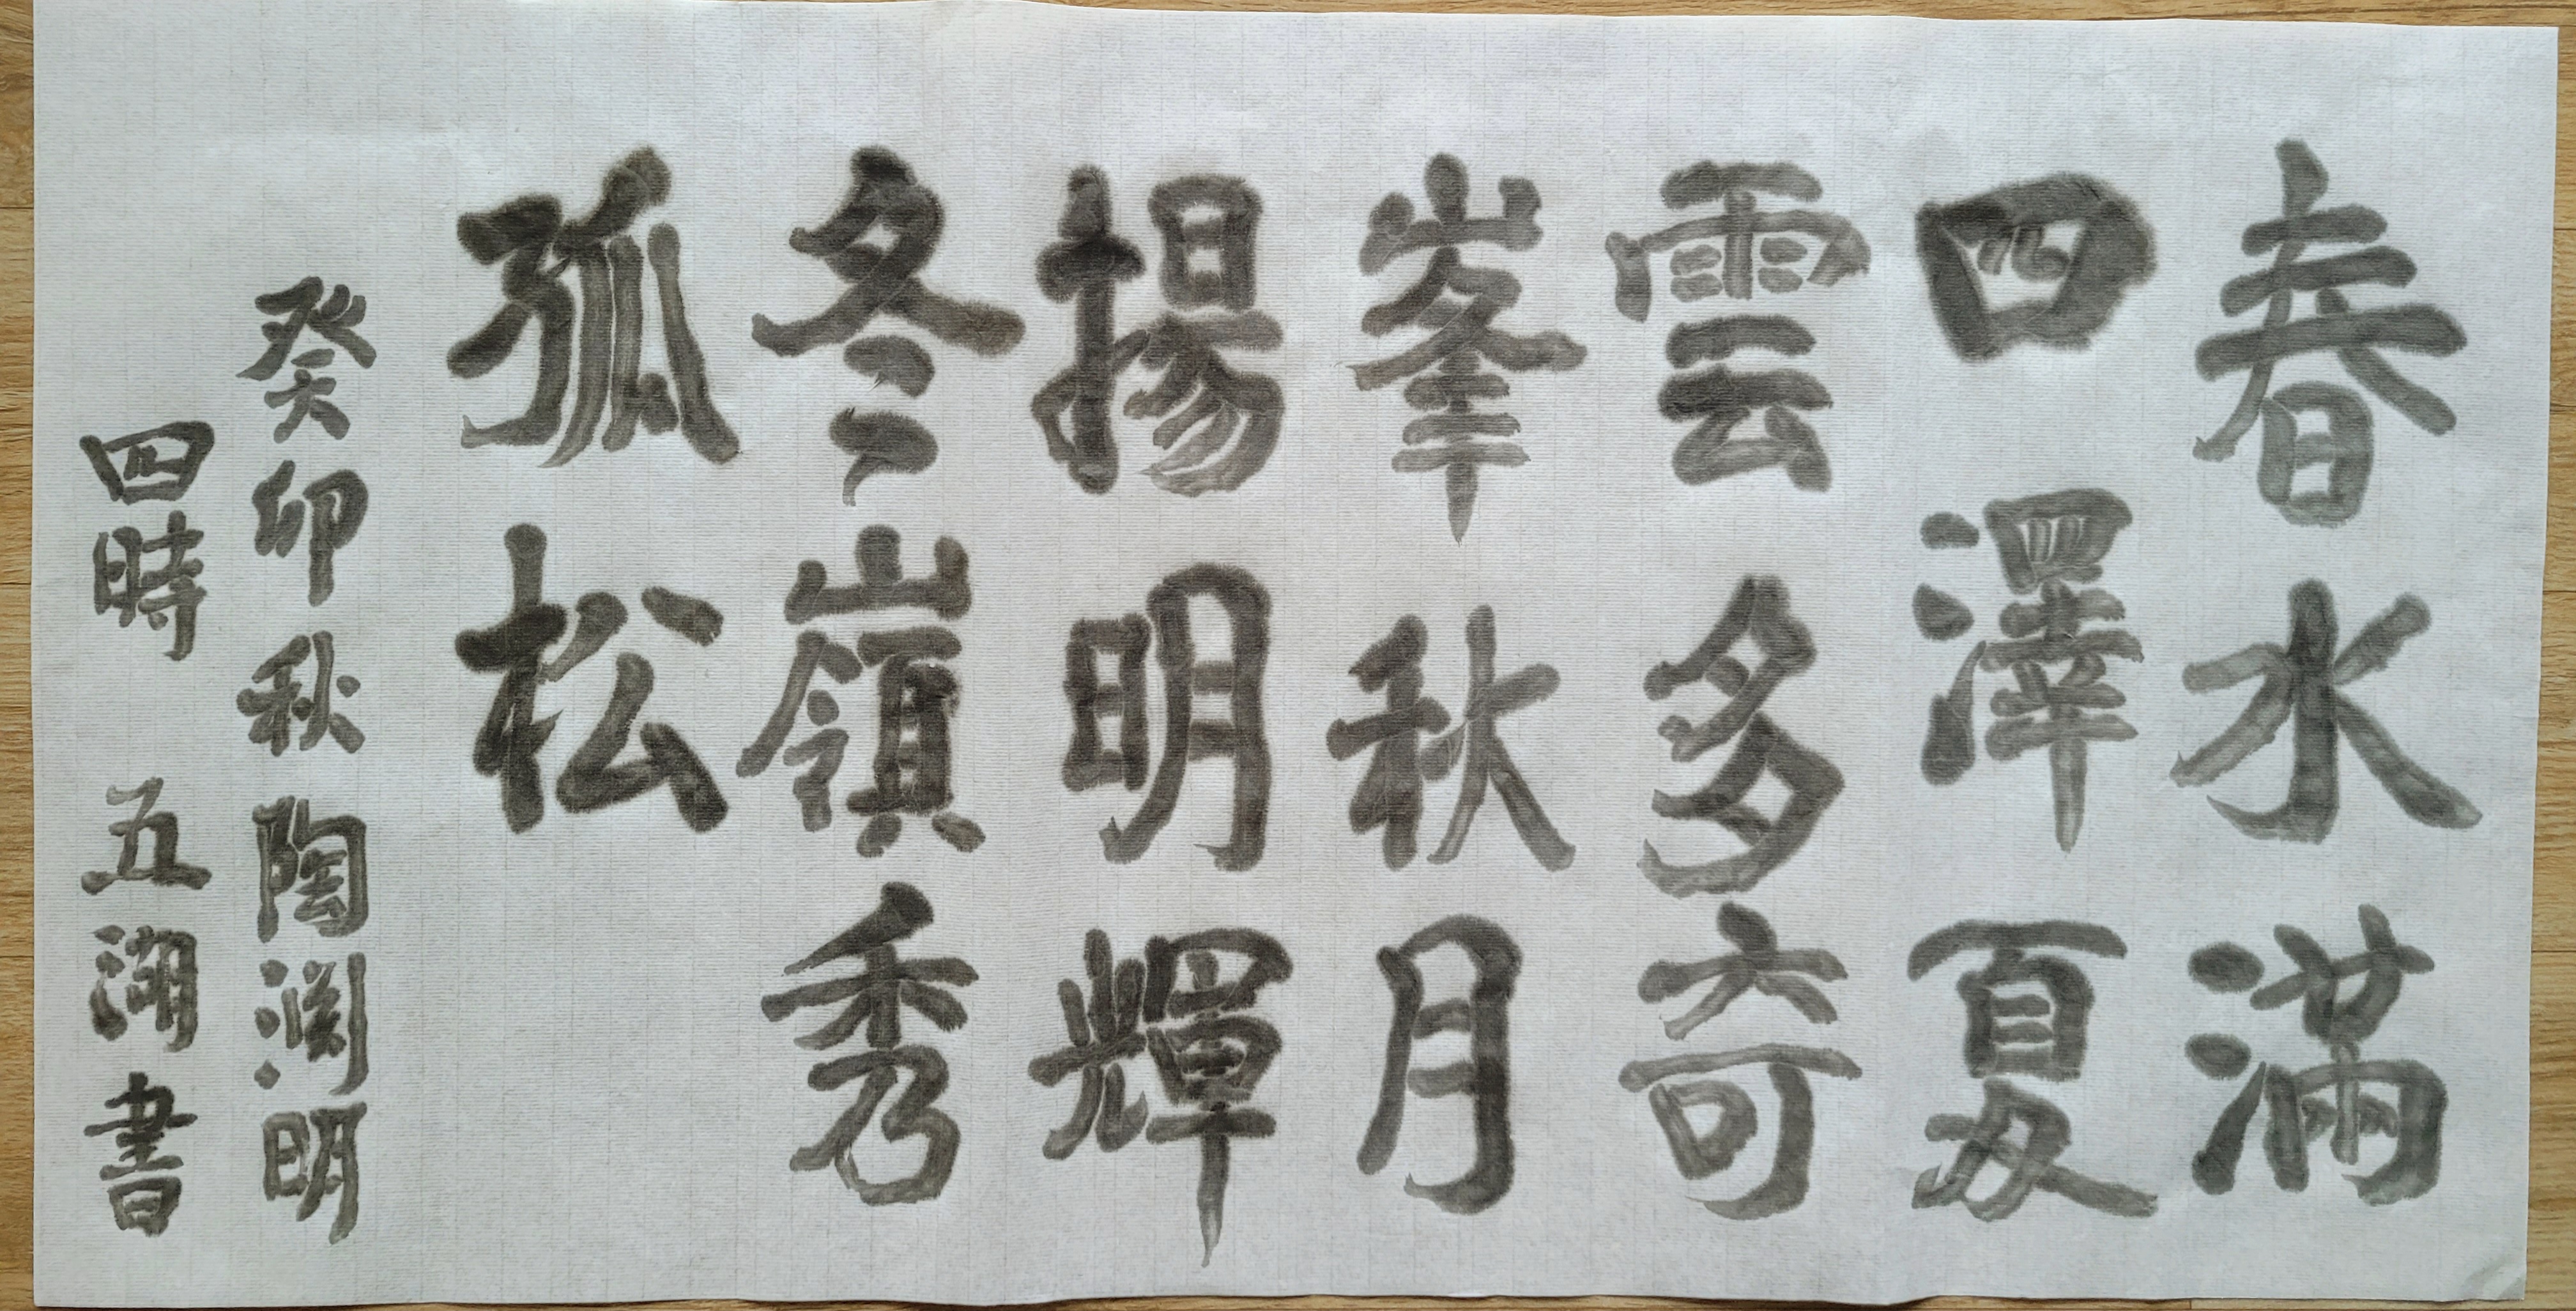 春水滿
四澤夏
雲多奇
峯秋月
揚明輝
冬嶺秀
孤松
癸卯秋陶渊明
四時五湖書